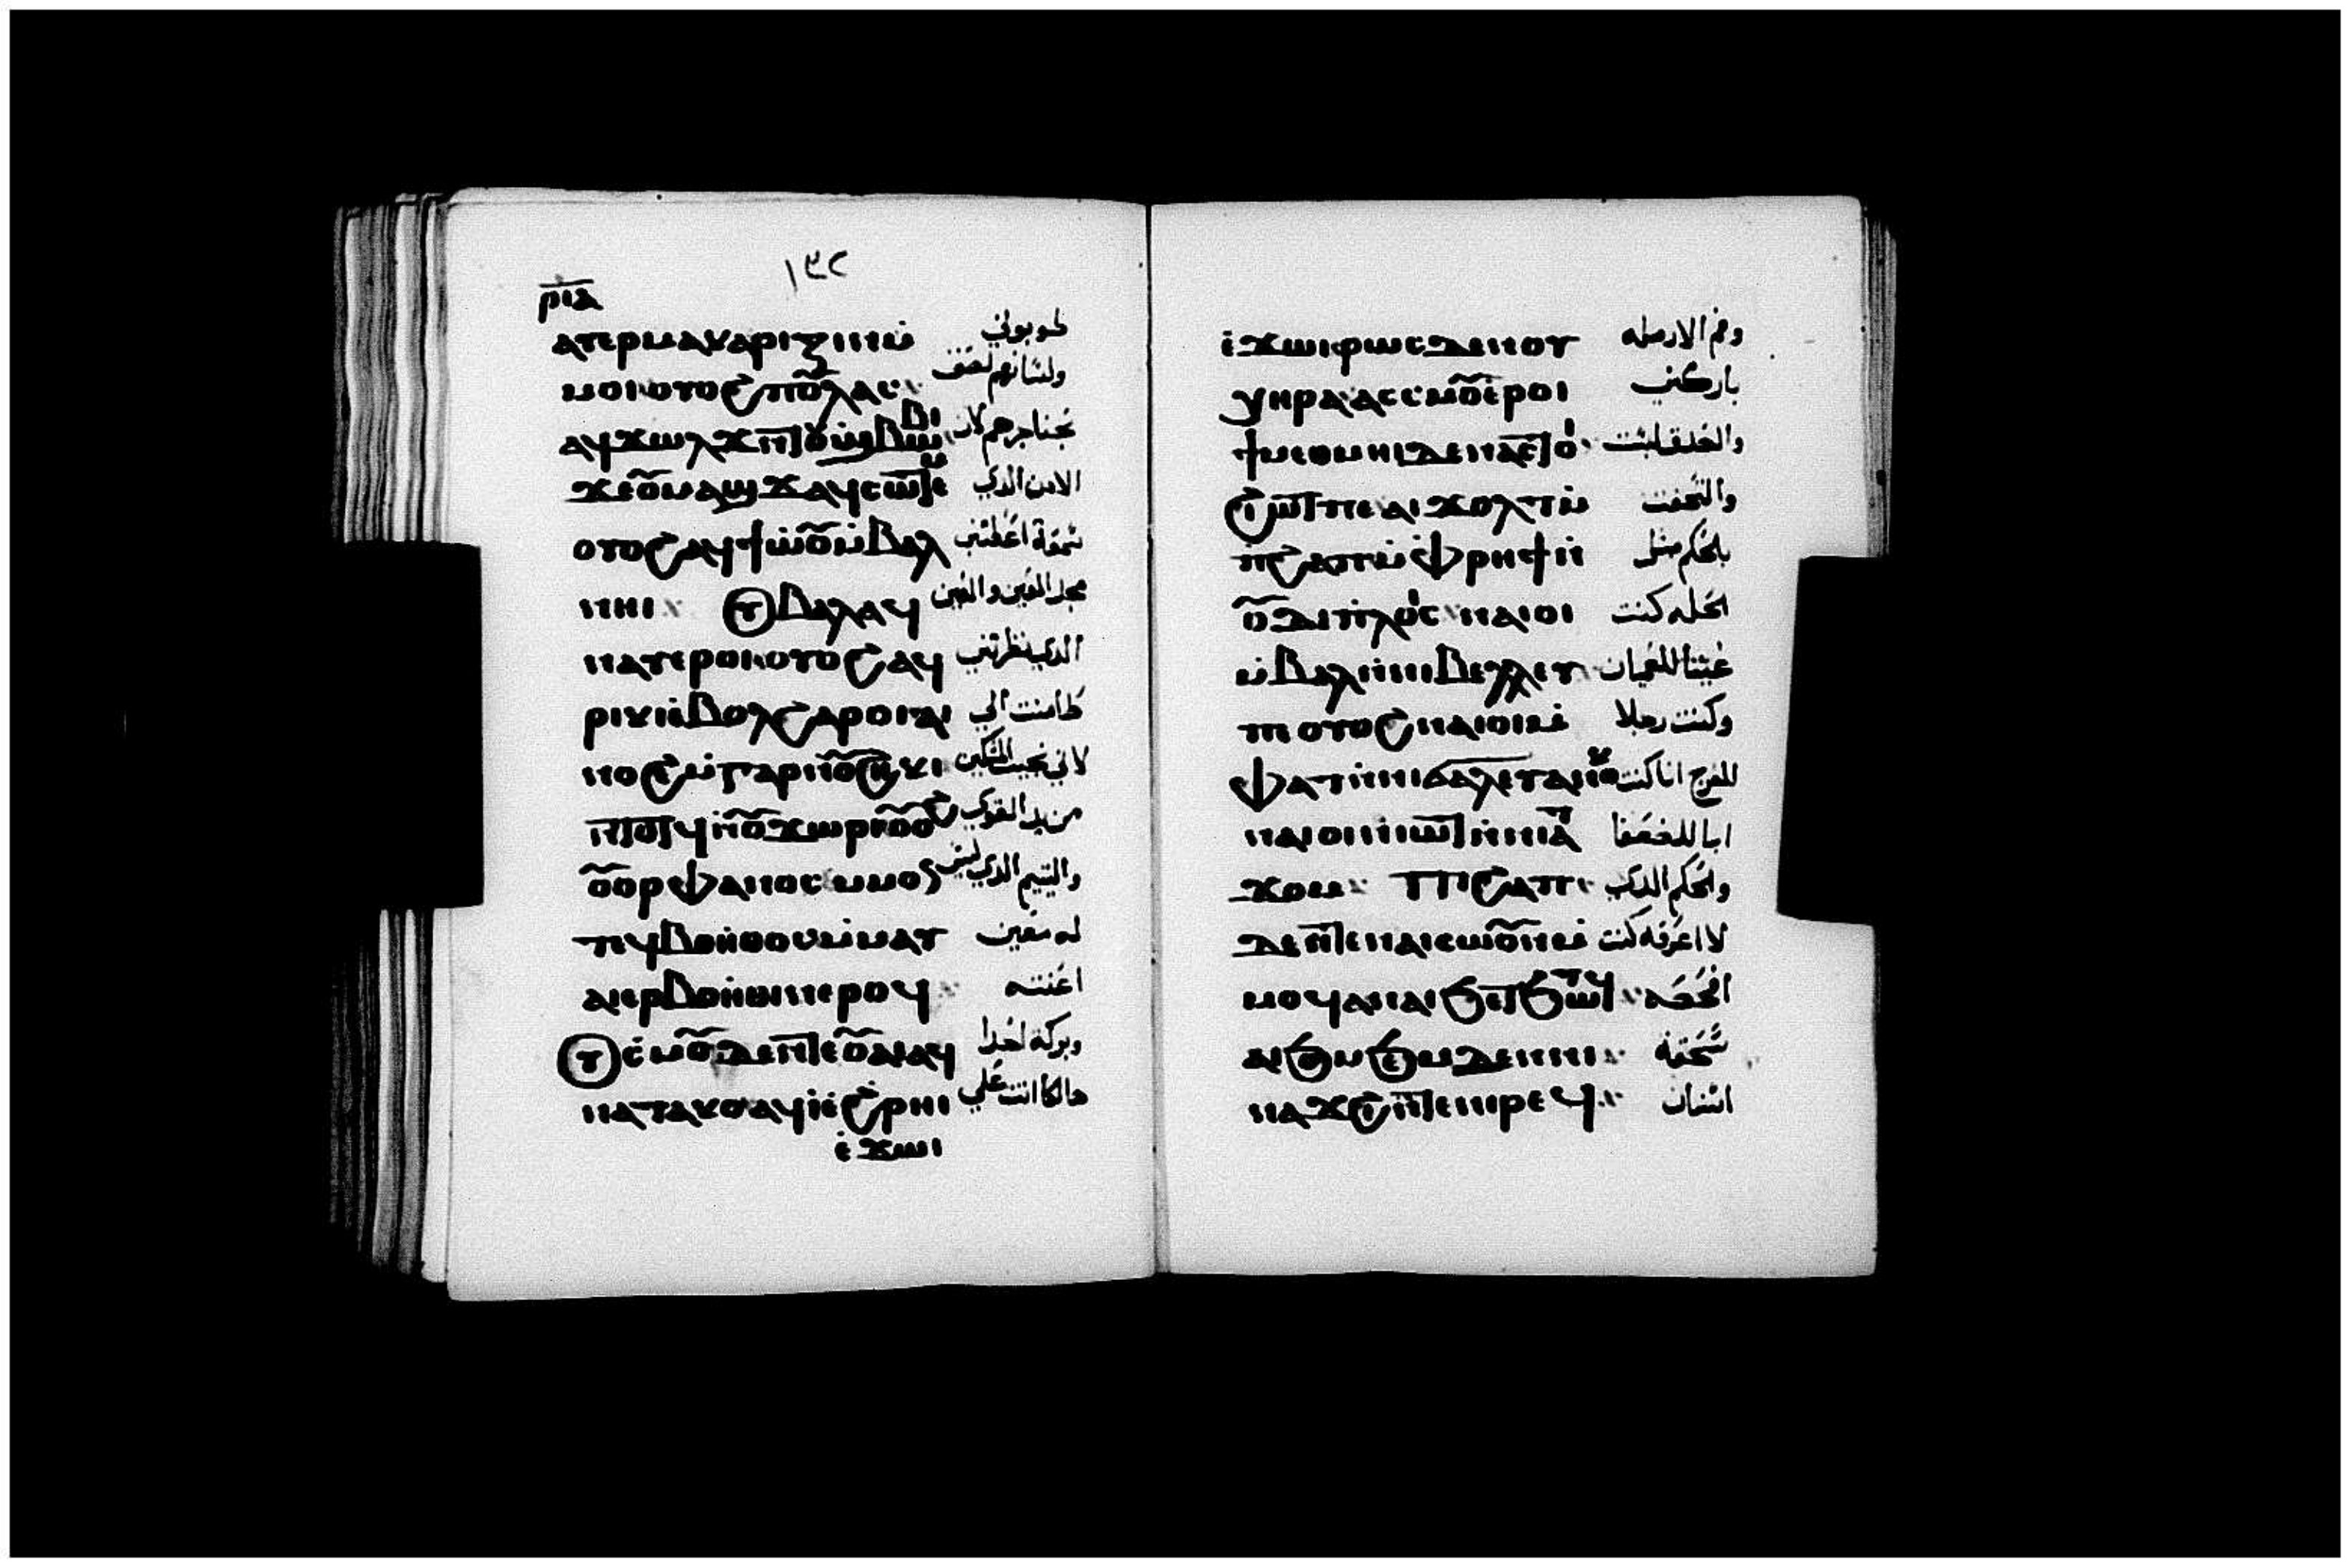 ١٣٢
ⲣⲓⲁ
ⲁⲧⲉⲣⲙⲁⲕⲁⲣⲓⲍⲓⲛⲙ̇ طوبوني
ⲙⲟⲓ ⲟⲩⲟϩ ⲡⲟⲩⲗⲁⲥ ولسانهم لصق
ⲁϥϫⲱⲗϫ بحناجرهم لان
ϫⲉⲟⲩⲙⲁϣϫ ⲁϥⲥⲱⲧⲉ الادن الدي
ⲟⲩⲟϩ ⲁϥϯⲙ̇ⲟⲩⲛ̇ⲃⲁⲗ
ⲛⲏⲓ ⲟⲩⲃⲁⲗ ⲁϥ والعين
ⲛⲁⲩ ⲉⲣⲟⲓ ⲟⲩⲟϩ ⲁϥ الدي نظرتني
ⲣⲓⲕⲓ ⲉ̇ⲃⲟⲗ ϩⲁⲣⲟⲓ ⲁⲓ طامنت الي
ⲛⲟϩⲙ̇ ⲅⲁⲣ ⲛ̇ⲟⲩϩⲏⲕⲓ لاني نجيت المسكين
ⲛ̇ⲟⲩϫⲱⲣⲓ من يد القوي
ⲟⲩⲟⲣⲫⲁⲛⲟⲥ ⲙⲙⲟⲛ واليتيم الدي ليس
ⲧⲉϥⲃⲟⲏ̇ⲑⲟⲥ ⲙ̇ⲙⲁⲩ له معين
ⲁⲓⲉⲣⲃⲟⲏ̇ⲑⲓⲛ ⲉⲣⲟϥ اعنته
ⲟⲩⲥ̇ⲙⲟⲩ ⲇⲉ ⲛ̇ⲧⲉ ⲟⲩⲁⲓ ⲁϥ وبركة احدا
ⲛⲁⲧⲁⲕⲟ ⲁϥⲓ̇ ⲉ̇ϩⲣⲏⲓ هالكا اتت علي
ⲉ̇ϫⲱⲓ
ⲉ̇ϫⲱⲓ ⲣⲱⲥ ⲇⲉ ⲛⲟⲩ وفم الارمله
ⲭⲏⲣⲁ ⲁⲥⲥⲙⲟⲩ ⲉ̇ⲣⲟⲓ باركني
ϯⲙⲉⲑⲙⲏⲓ ⲇⲉ ⲛⲁⲓ والعدل لبست
ϩⲓⲱⲧ ⲡⲉ ⲁⲓϫⲟⲗⲧ ⲙ̇ والتحفت
ⲡϩⲁⲡ ⲙ̇ⲫⲣⲏϯ ⲛ̇ بالحكم مثل
ⲟⲩⲇⲓⲡⲗⲟⲩⲥ ⲛⲁⲓⲟⲓ الحله كنت
ⲙ̇ⲃⲁⲗ ⲛ̇ⲛⲓⲃⲉⲗⲗⲉⲩ عينا للعميان
ⲡⲉ ⲟⲩⲟϩ ⲛⲁⲓⲟⲓ ⲙ̇ وكنت رجلا
ⲫⲁⲧ ⲛ̇ⲛⲓϭⲁⲗⲉⲩ ⲁⲛⲟⲕ للعرج انا كنت
ⲛⲁⲓⲟⲓ ⲛ̇ⲓⲱⲧ ⲛ̇ⲛⲓⲁⲧ ابا للضعفا
ϫⲟⲙ ⲡⲓϩⲁⲡ والحكم الدي
ⲇⲉ ⲉ̇ⲧⲉ ⲛⲁⲓⲥⲱⲟⲩⲛ ⲙ̇ لا اعرفه كنت
ⲙⲟϥ ⲁⲛ ⲁⲓϧⲉⲧϧⲱⲧϥ افحصه
ⲁⲓϧⲟⲙϧⲉⲙ ⲇⲉ ⲛⲛⲓ سحقت
ⲛⲁϫϩⲓ ⲛ̇ⲧⲉ ⲛⲓⲣⲉϥ اسنان